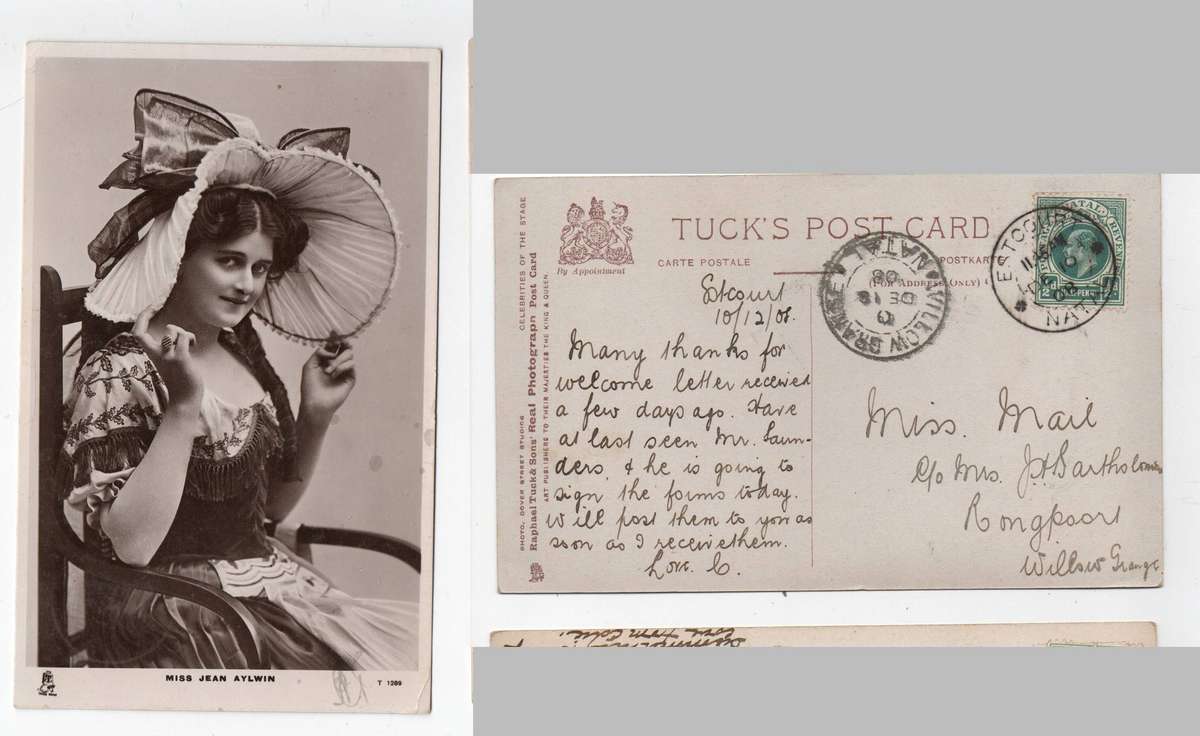 MISS JEAN AYLWIN
T 1289
CELEBRITIES OF THE STAGE
PHOTO, DOVER STREET STUDIOS
Raphael Tuck & Sons' Real Photograph Post Card
ART PUBLISHERS TO THEIR MAJESTIES THE KING & QUEEN.
By Appointment
TUCK'S POST CARD
CARTE POSTALE
POSTKAR
(For Address Only)
NATAL
ESTCOURT
NATAL
WILLOW GRANGE
NATAL
DE 10
08
Estcourt
10/12/08.
Many thanks for
welcome letter received
a few days ago. Have
at last seen Mr. Saun-
ders, & he is going to
sign the forms today.
Will post them to you as
soon as I receive them.
Love C.
Miss. Mail
c/o Mrs. J H Bartholomew
Willow Grange